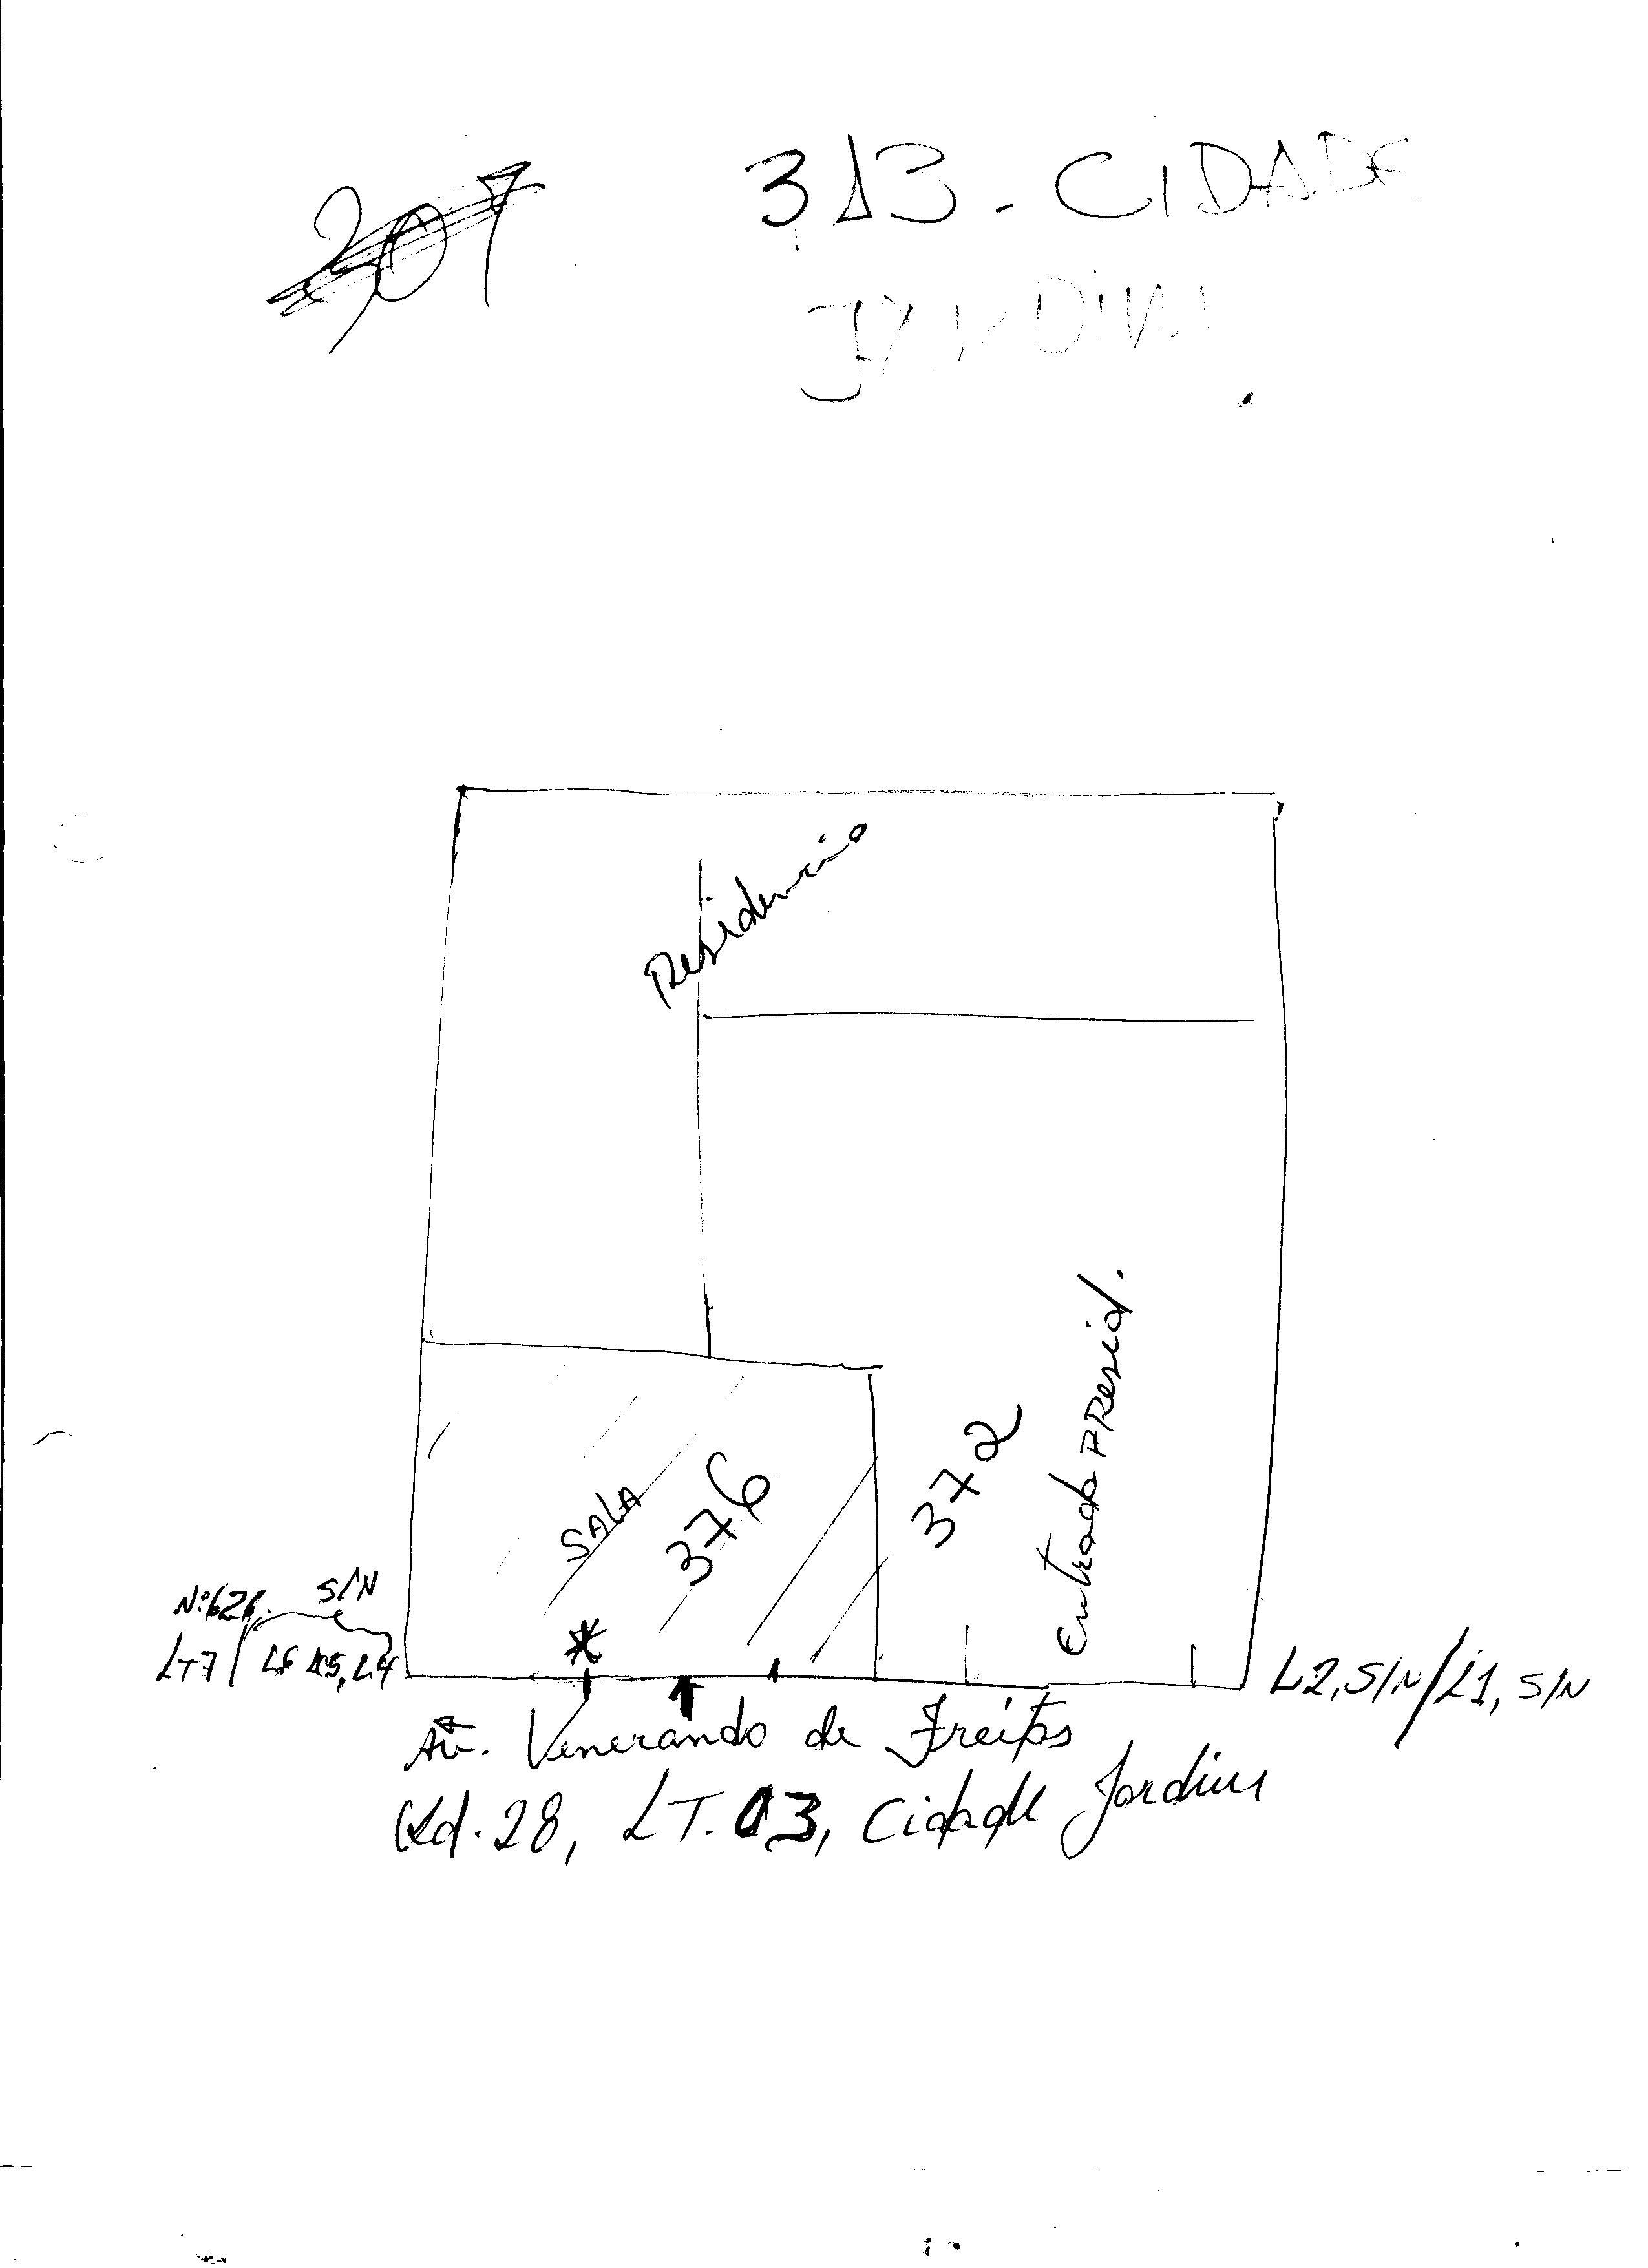 307
313 - CIDADE
JARDIM
Residencia
SALA
376
372
Entrada Resid.
Nº 626 S/N
LT7 / L6 L5, L4
L2, S/N / L1, S/N
Av. Venerando de Freitas
Qd. 28, LT. 03, Cidade Jardim